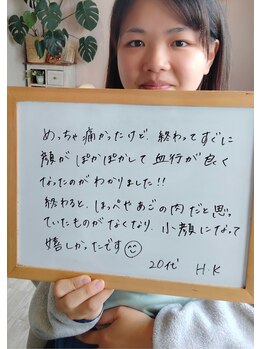 めっちゃ痛かったけど、終わってすぐに
顔がぽかぽかして血行が良く
なったのがわかりました!!
終わると、ほっぺやあごの肉だと思っ
ていたものがなくなり、小顔になって
嬉しかったです
20代 H K